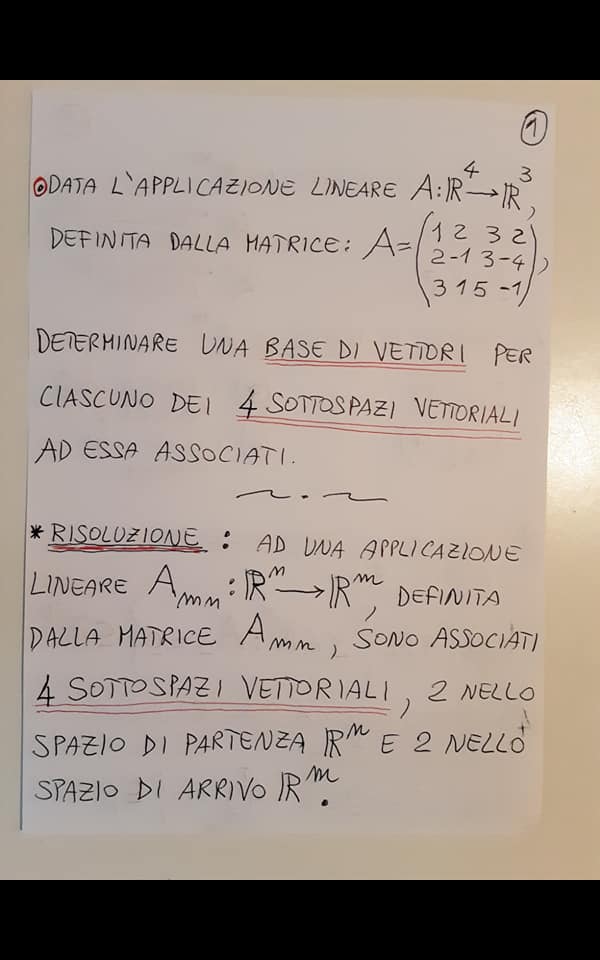 1
DATA L'APPLICAZIONE LINEARE A: ℝ⁴ → ℝ³,
DEFINITA DALLA MATRICE: A = (1 2 3 2
2 -1 3 -4
3 1 5 -1),
DETERMINARE UNA BASE DI VETTORI PER
CIASCUNO DEI 4 SOTTOSPAZI VETTORIALI
AD ESSA ASSOCIATI.
* RISOLUZIONE : AD UNA APPLICAZIONE
LINEARE Aₘₙ: ℝⁿ → ℝᵐ, DEFINITA
DALLA MATRICE Aₘₙ, SONO ASSOCIATI
4 SOTTOSPAZI VETTORIALI, 2 NELLO
SPAZIO DI PARTENZA ℝⁿ E 2 NELLO
SPAZIO DI ARRIVO ℝᵐ.